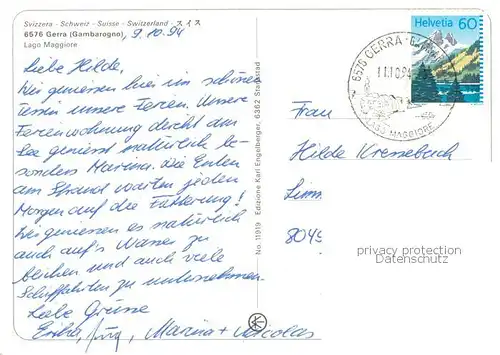 Svizzera - Schweiz - Suisse - Switzerland - スイス
6576 Gerra (Gambarogno)
Lago Maggiore
9.10.94
Liebe Hilde,
Wir geniessen hier im schönen
Tessin unsere Ferien. Unsere
Ferienwohnung direkt am
See geniesst natürlich be-
sonders Marina. Die Enten
am Strand warten jeden
Morgen auf die Fütterung!
Wir geniessen es natürlich
auch auf's Wasser zu
blicken und auch viele
Schiffahrten zu unternehmen.
Liebe Grüsse
Jürg, Marina + Nicolas
No. 11919 Edizione Karl Engelberger, 6362 Stansstad
Helvetia 60
6576 GERRA
LAGO MAGGIORE
Frau
Hilde Kressebuch
8049
privacy protection
Datenschutz